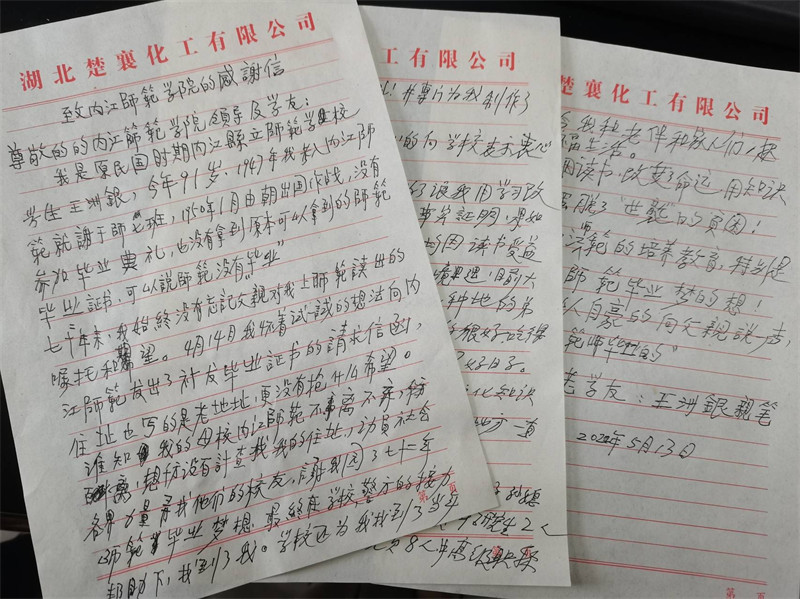 湖北楚襄化工有限公司
致内江師範学院的感謝信
尊敬的的内江師範学院領导及学友:
我是原民国时期内江縣立師範学校
学生王洲銀,今年91岁,1947年我考入内江師
範就讀于師七班,1950年1月由朝出国作战,没有
参加毕业典礼,也没有拿到原本可以拿到的師範
毕业証书,可以説師範没有毕业"
七十年来,我始终没有忘記父親对我上師範读出的
嘱托和希望。4月14日我怀着试一试的想法向内
江師範发出了补发毕业証书的請求信函,
住址也写的是老地址,更没有抱什么希望。
谁知我的母校内江師範不離不弃,
想方設法計查找我的住址,动員社会
各界力量寻找他们的校友,讓我园了七十二年
師範毕业梦想,最终在学校、警方的接力
帮助下,找到了我。学校还为我找到了当年
第 页
工有限公司
并專门为我制作了
的向学校表示衷心
的讓我用学习改
毕業证明,是她
的因读书受益
目前大
种地的弟
很好吃穿
了好日子。
化知识
地方一直
研究生2人
8人中高级职称
楚襄化工有限公司
我和老伴和家人们,起
福生活。
用读书,改变了命运,用知识
脱了"世襲"的貧困!
師範的培养教育,特别是
師範毕业梦的想!
人自豪的向父親説声,
範師毕业的"
老学友:王洲銀親笔
2022年5月13日
第 页